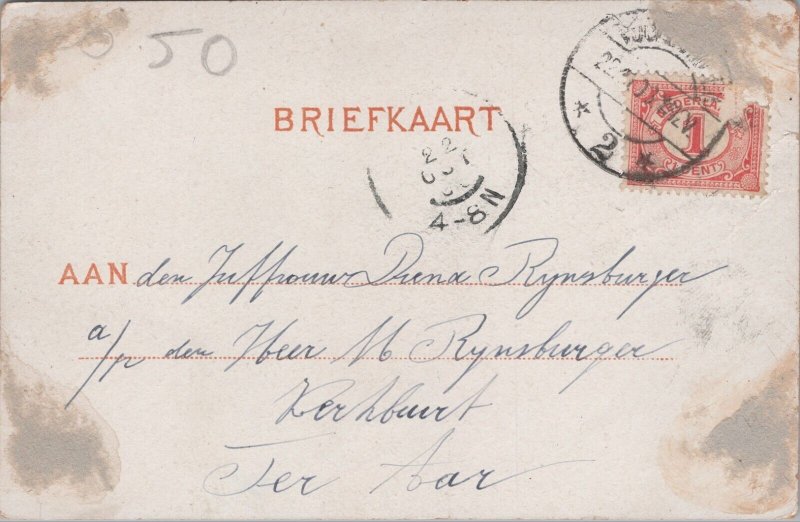 50
BRIEFKAART
NEDERL.
1
CENT
2
4-8N
AAN den Juffrouw Diena Rynsburger
a/p den Heer M Rynsburger
Kerkbuurt
Ter Aar